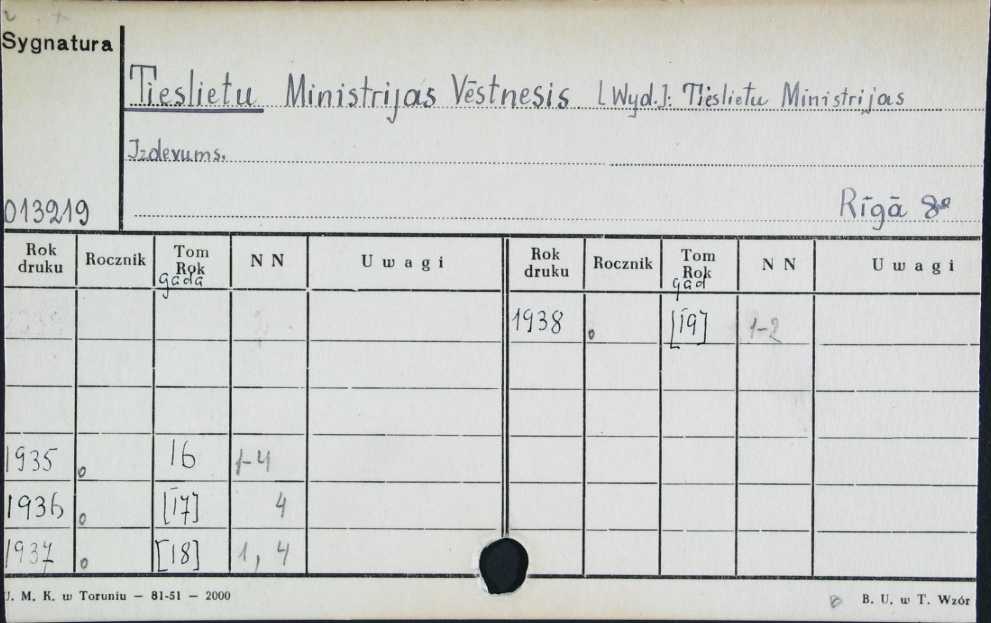 Sygnatura
Tieslietu Ministrijas Vēstnesis [Wyd.]: Tieslietu Ministrijas
Izdevums.
013219
Rīgā 8°
Rok druku Rocznik Tom Rok gada NN Uwagi Rok druku Rocznik Tom Rok gad NN Uwagi
1938 [19] 1-2
1935 16 1-4
1936 [17] 4
1937 [18] 1, 4
U. M. K. w Toruniu — 81-51 — 2000
B. U. w T. Wzór